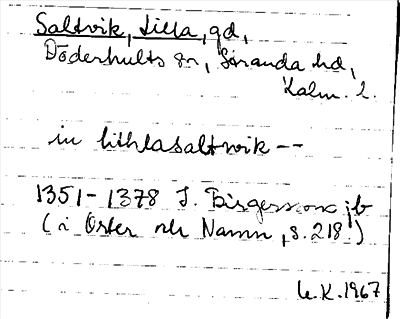 Saltvik, Lilla, gd,
Döderhults sn, Stranda hd,
Kalm. l.
in lithlasaltwik --
1351-1378 J. Birgerssons jb
(i Öster och Namn, s. 218)
K. 1967